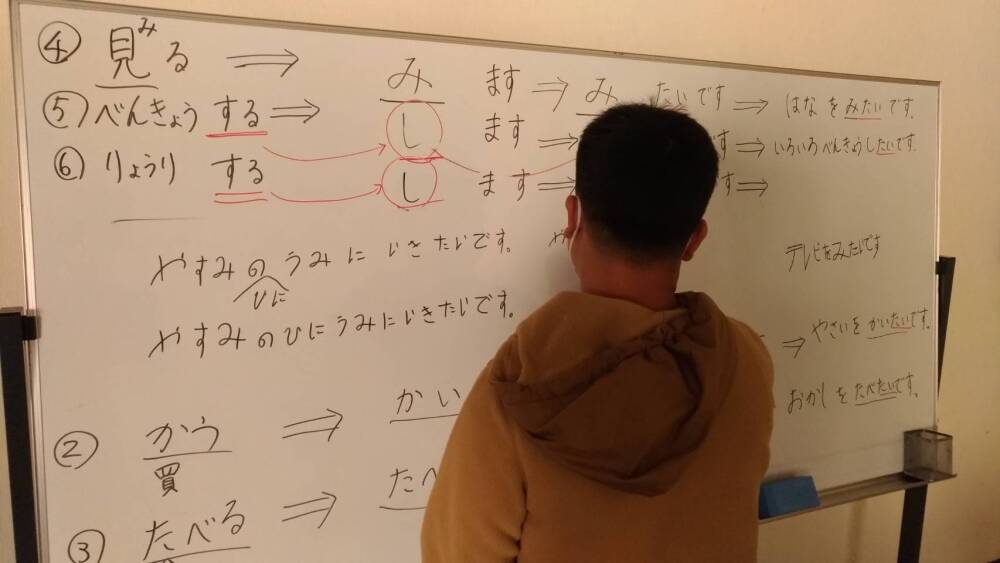 ④ 見み る ⇒ み ます ⇒ み たいです ⇒ はなをみたいです。
⑤ べんきょう する ⇒ し ます す ⇒ いろいろべんきょうしたいです。
⑥ りょうり する ⇒ し ます ⇒ す ⇒
やすみの うみに いきたいです。 や
ひに
テレビをみたいです
やすみのひにうみにいきたいです。
② かう ⇒ かい ⇒ やさいを かいたいです。
買
③ たべる ⇒ たべ おかしを たべたいです。